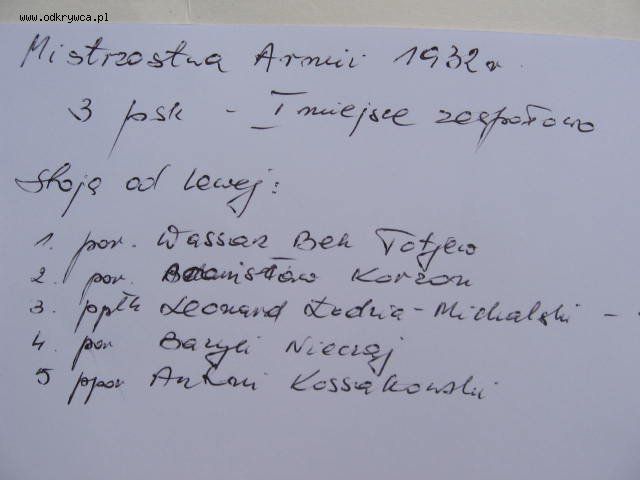 www.odkrywca.pl
Mistrzostwa Armii 1932 r.
3 psk - I miejsce zespołowo
Stoją od lewej:
1. por. Wassan Bek Totjew
2. por. Bronisław Korzon
3. ppłk Leonard Łodzia-Michalski -
4. por Bazyli Nieczaj
5 ppor Antoni Kossakowski